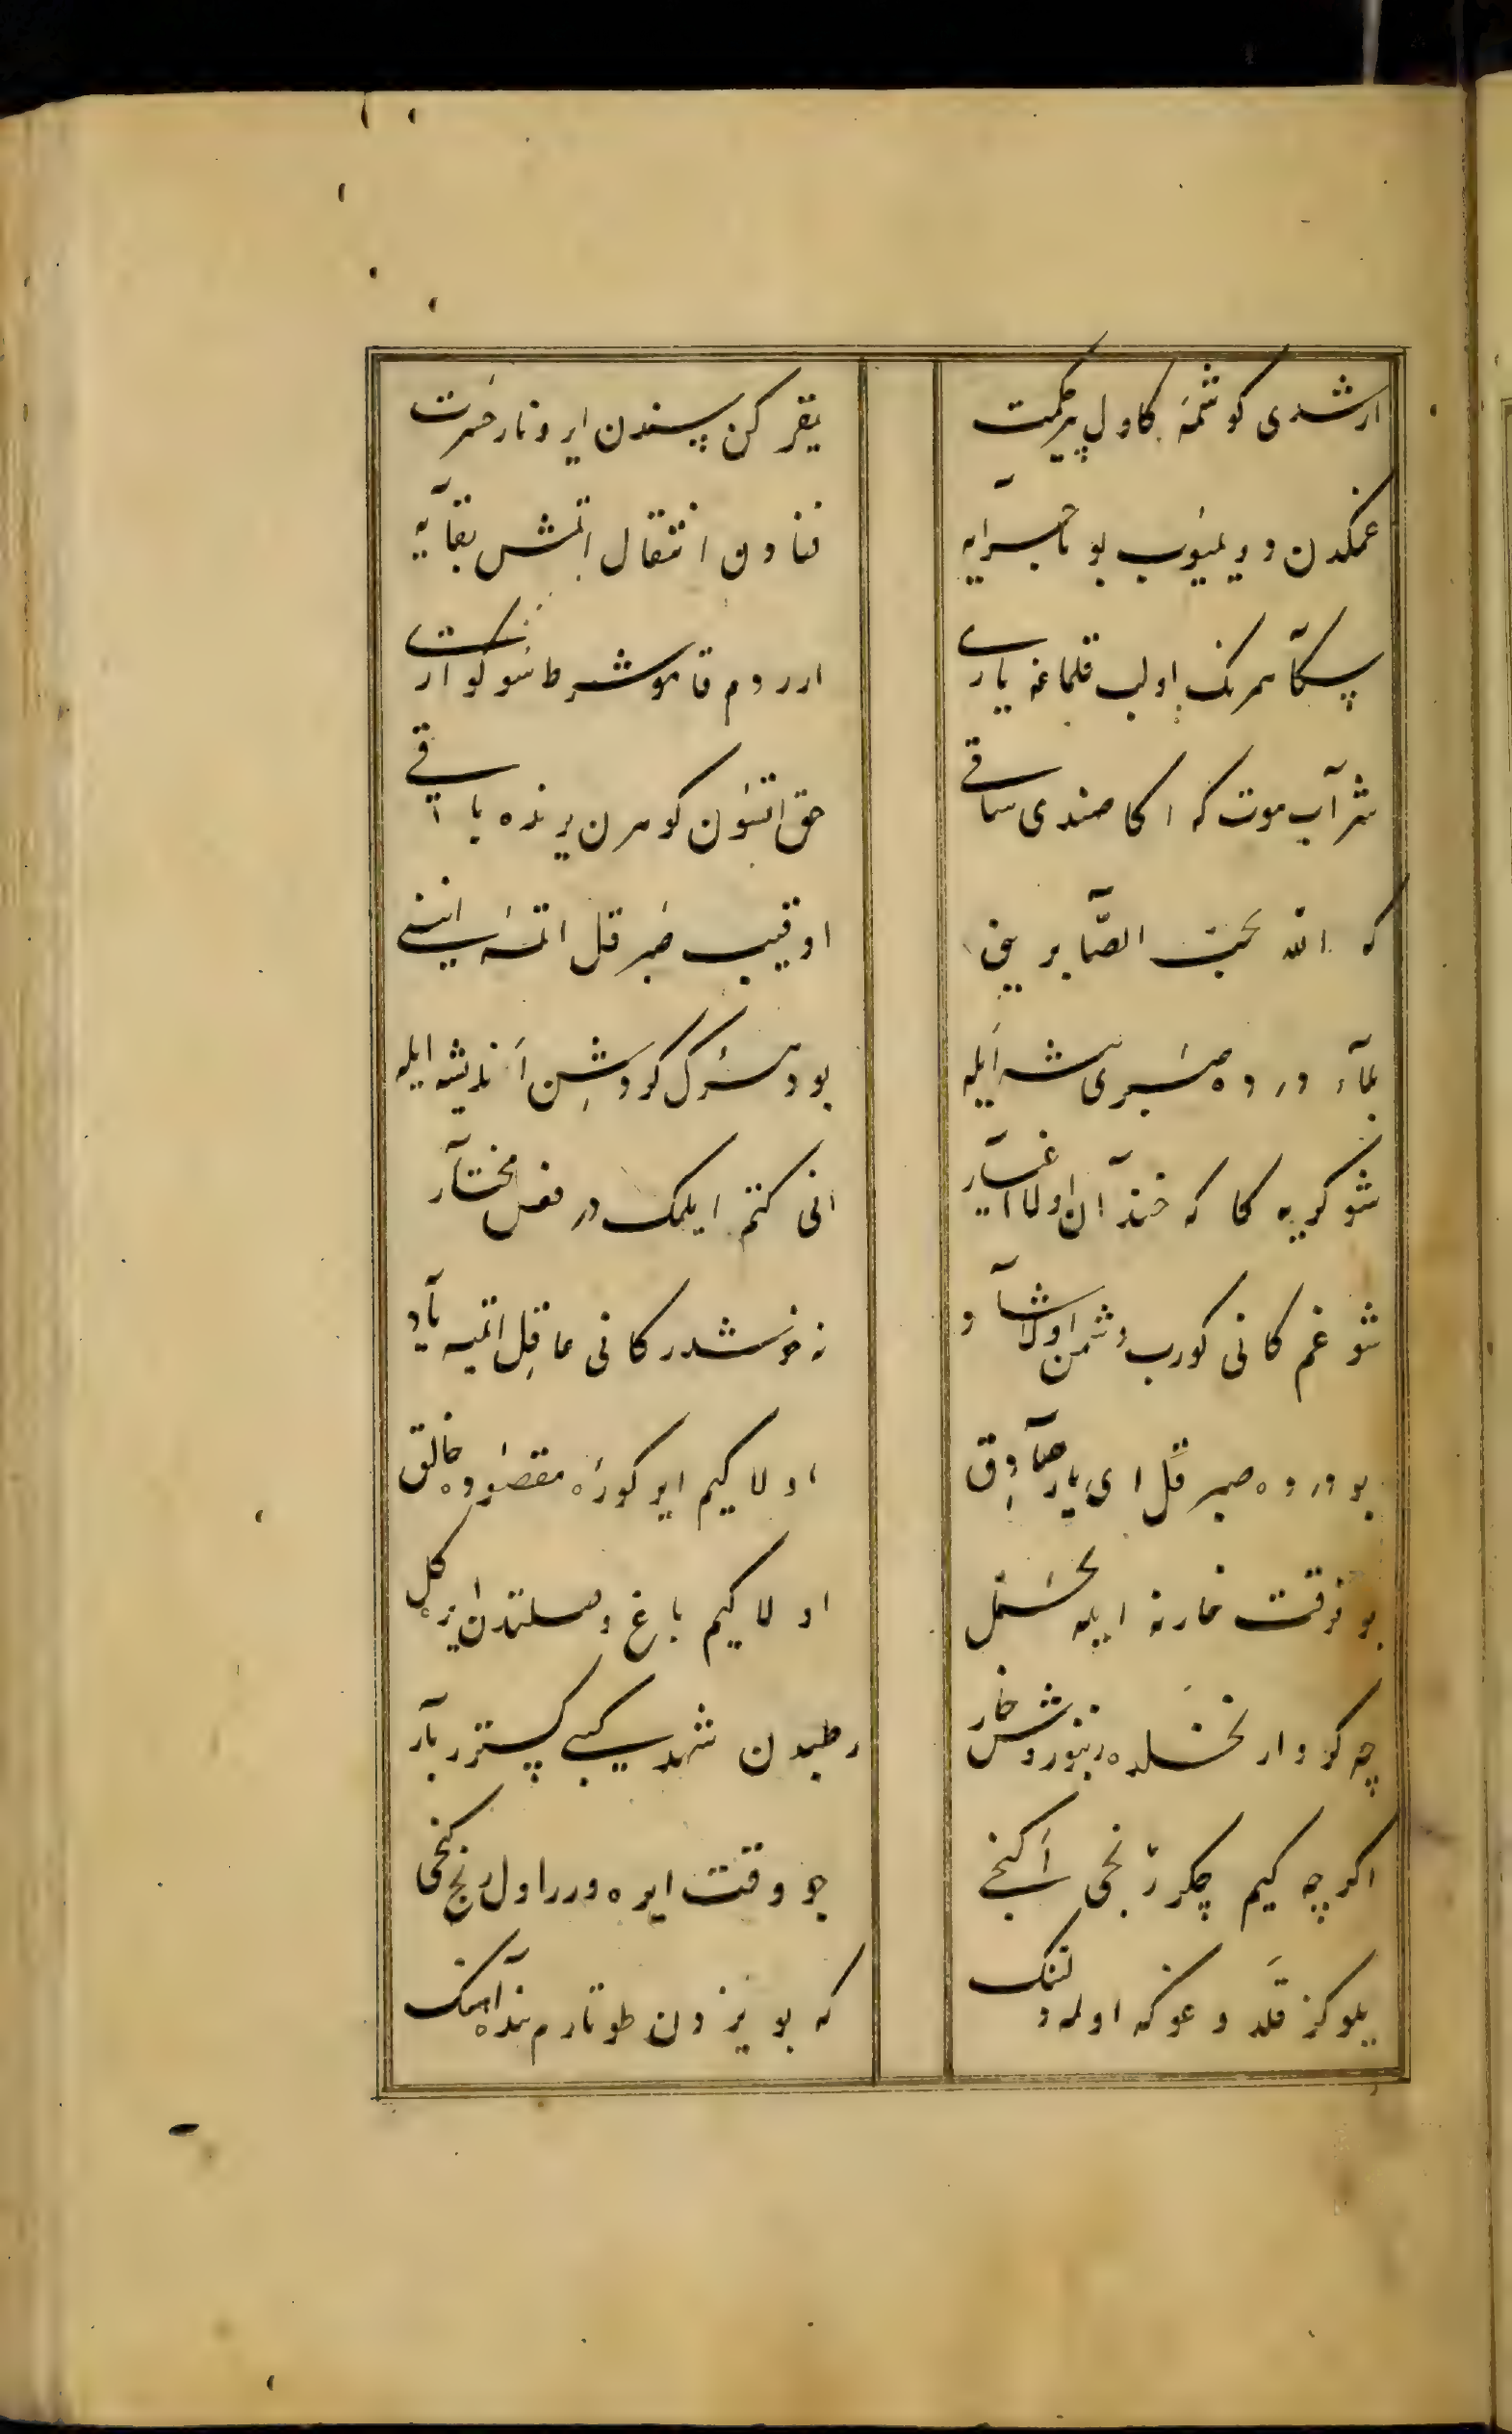 ارشدی کوشمه کاول پیرحکمت
یقر کن پسندن ایر و نار حسرت
غمکدن دویمیوب بو ماجرایه
فنادن انتقال اتمش بقایه
سکا همرنک اولب قلماغه یاری
شرآب موت که اکا صندی ساقی
حق اتسون کوهرن یرنده باقی
که الله یحبّ الصّابرینی
اوقیب صبر قل اتمه انینی
بلآء دردده صبری پیشه ایله
بو دهرک کردشن اندیشه ایله
شو کریه کا که خندآن اولا اغیآر
انی کتم ایلمک در فعل مختآر
شو غم کانی کورب دشمن اولا شآد
نه خوشدر کانی عاقل اتمیه یآد
بو دردده صبر قل ای یار صآدق
اولا کیم ایر کوره مقصوده خالق
بو فرقت خارنه ایله تحمّل
اولا کیم باغ وصلتدن ایره کل
چه کر وار نخلده زنبور و ش خار
رطبدن شهد کبی کسترر بآر
اکرچه کیم چکر رنجی اکنجی
چو وقت ایره درر اول رنج کنجی
که بو یزدن طوتارم بنده آهنک